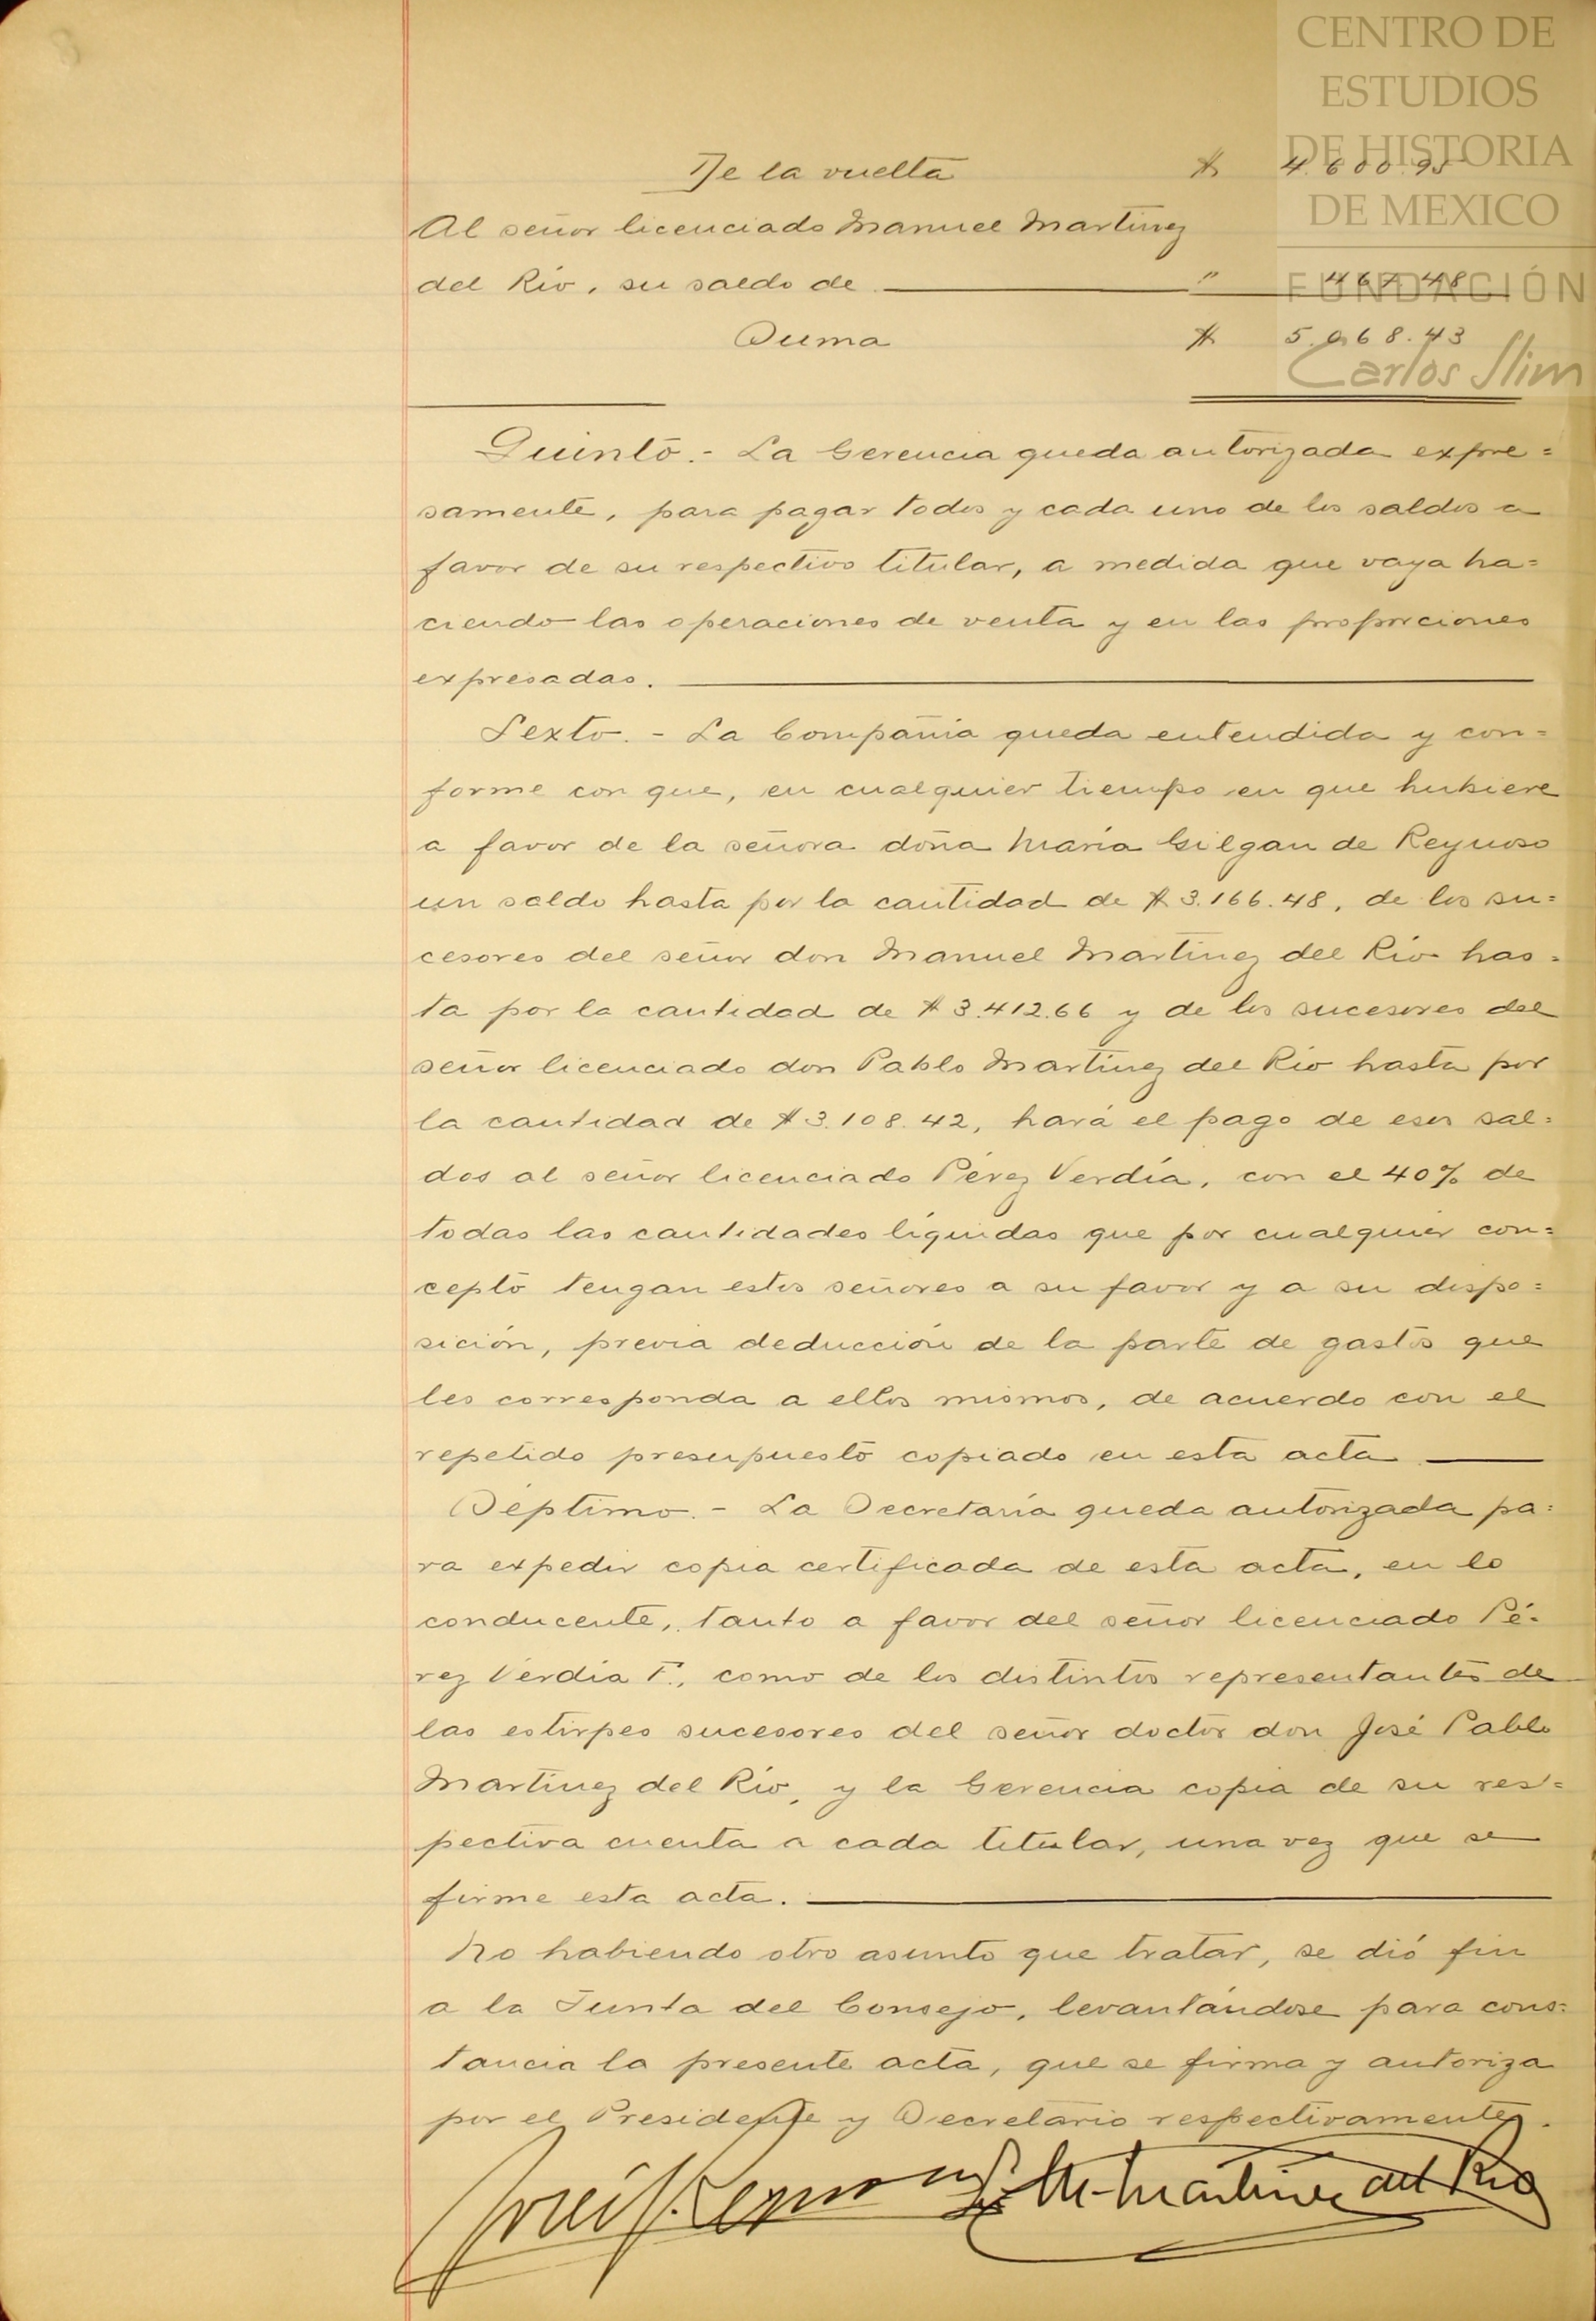 CENTRO DE
ESTUDIOS
DE HISTORIA
DE MEXICO
FUNDACIÓN
Carlos Slim
De la vuelta $ 4.600.95
Al señor licenciado Manuel Martínez
del Río, su saldo de " 467.48
Suma $ 5.068.43
Quinto.- La Gerencia queda autorizada expre=
samente, para pagar todos y cada uno de los saldos a
favor de su respectivo titular, a medida que vaya ha=
ciendo las operaciones de venta y en las proporciones
expresadas.
Sexto.- La Compañía queda entendida y con=
forme con que, en cualquier tiempo en que hubiere
a favor de la señora doña María Gilgan de Reynoso
un saldo hasta por la cantidad de $ 3.166.48, de los su=
cesores del señor don Manuel Martínez del Río has=
ta por la cantidad de $ 3.412.66 y de los sucesores del
señor licenciado don Pablo Martínez del Río hasta por
la cantidad de $ 3.108.42, hará el pago de esos sal=
dos al señor licenciado Pérez Verdía, con el 40% de
todas las cantidades líquidas que por cualquier con=
cepto tengan estos señores a su favor y a su dispo=
sición, previa deducción de la parte de gastos que
les corresponda a ellos mismos, de acuerdo con el
repetido presupuesto copiado en esta acta
Séptimo.- La Secretaría queda autorizada pa=
ra expedir copia certificada de esta acta, en lo
conducente, tanto a favor del señor licenciado Pé=
rez Verdía F., como de los distintos representantes de
las estirpes sucesores del señor doctor don José Pablo
Martínez del Río, y la Gerencia copia de su res=
pectiva cuenta a cada titular, una vez que se
firme esta acta.
No habiendo otro asunto que tratar, se dió fin
a la Junta del Consejo, levantándose para cons=
tancia la presente acta, que se firma y autoriza
por el Presidente y Secretario respectivamente.
M. Martínez del Río